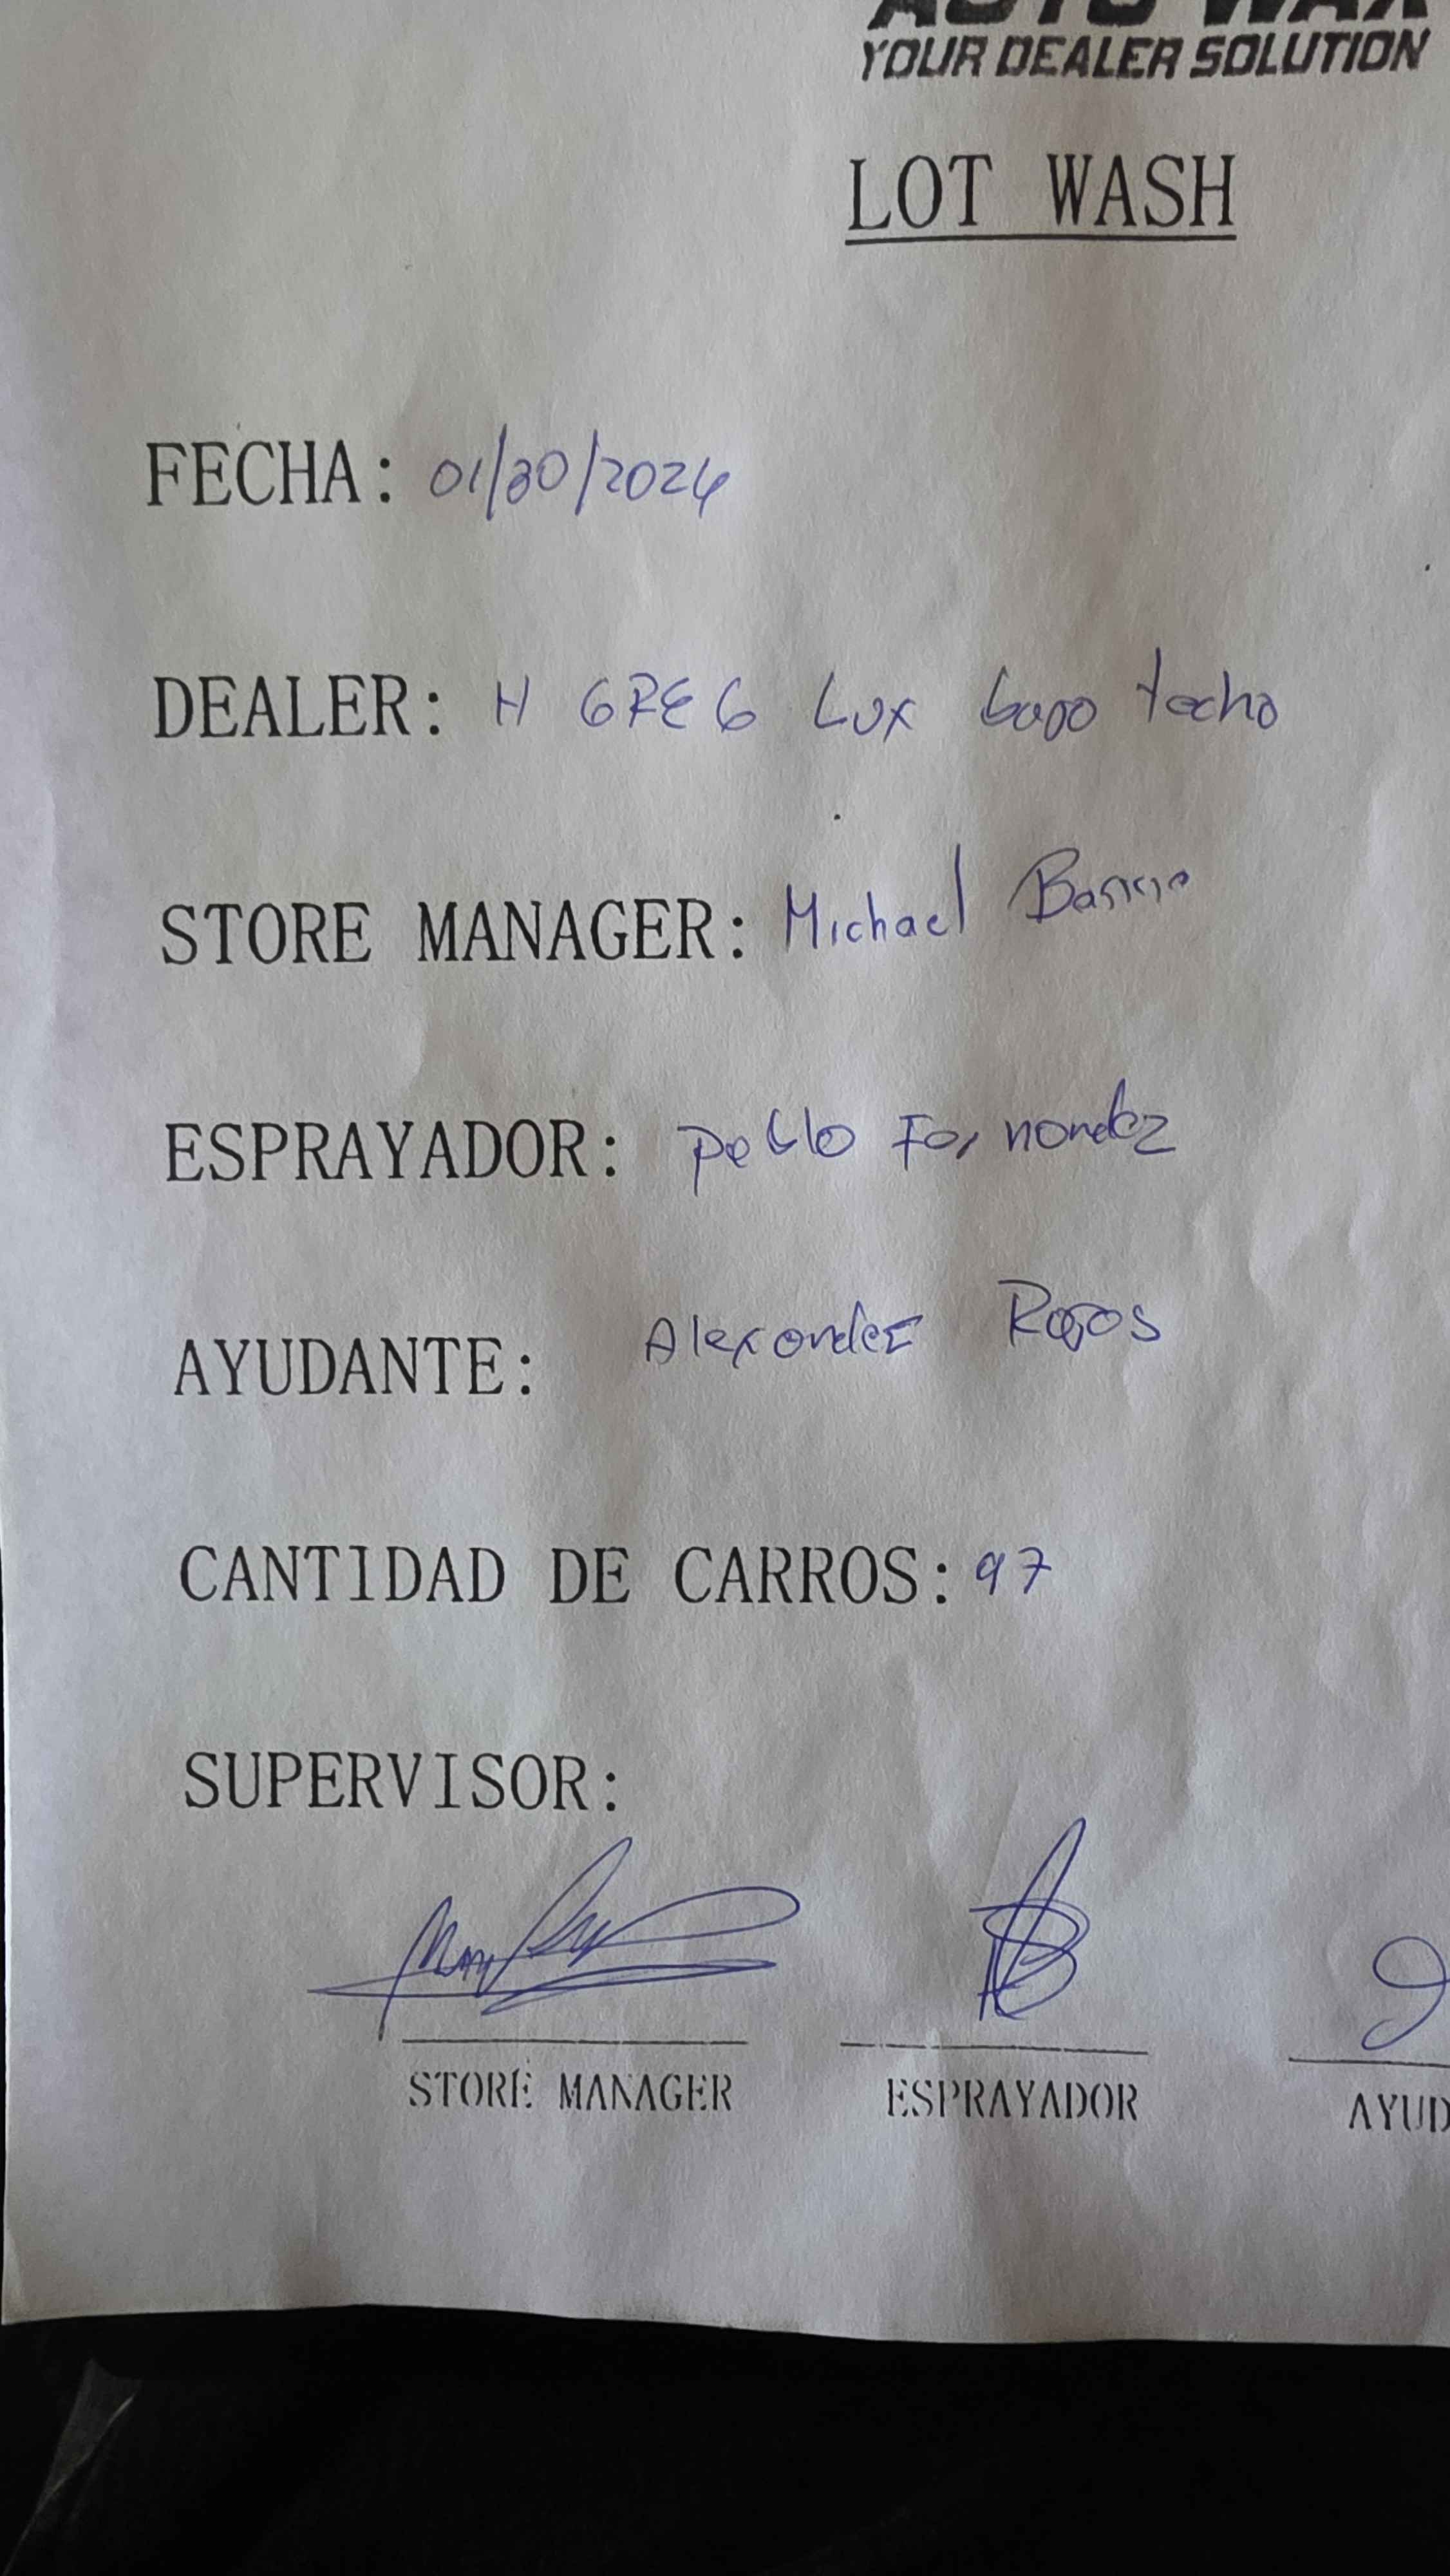 AUTO WAX
YOUR DEALER SOLUTION
LOT WASH
FECHA: 01/30/2024
DEALER: H GREG Lux bajo techo
STORE MANAGER: Michael
ESPRAYADOR: Pablo Fernandez
AYUDANTE: Alexander Rojas
CANTIDAD DE CARROS: 97
SUPERVISOR:
STORE MANAGER ESPRAYADOR AYUD